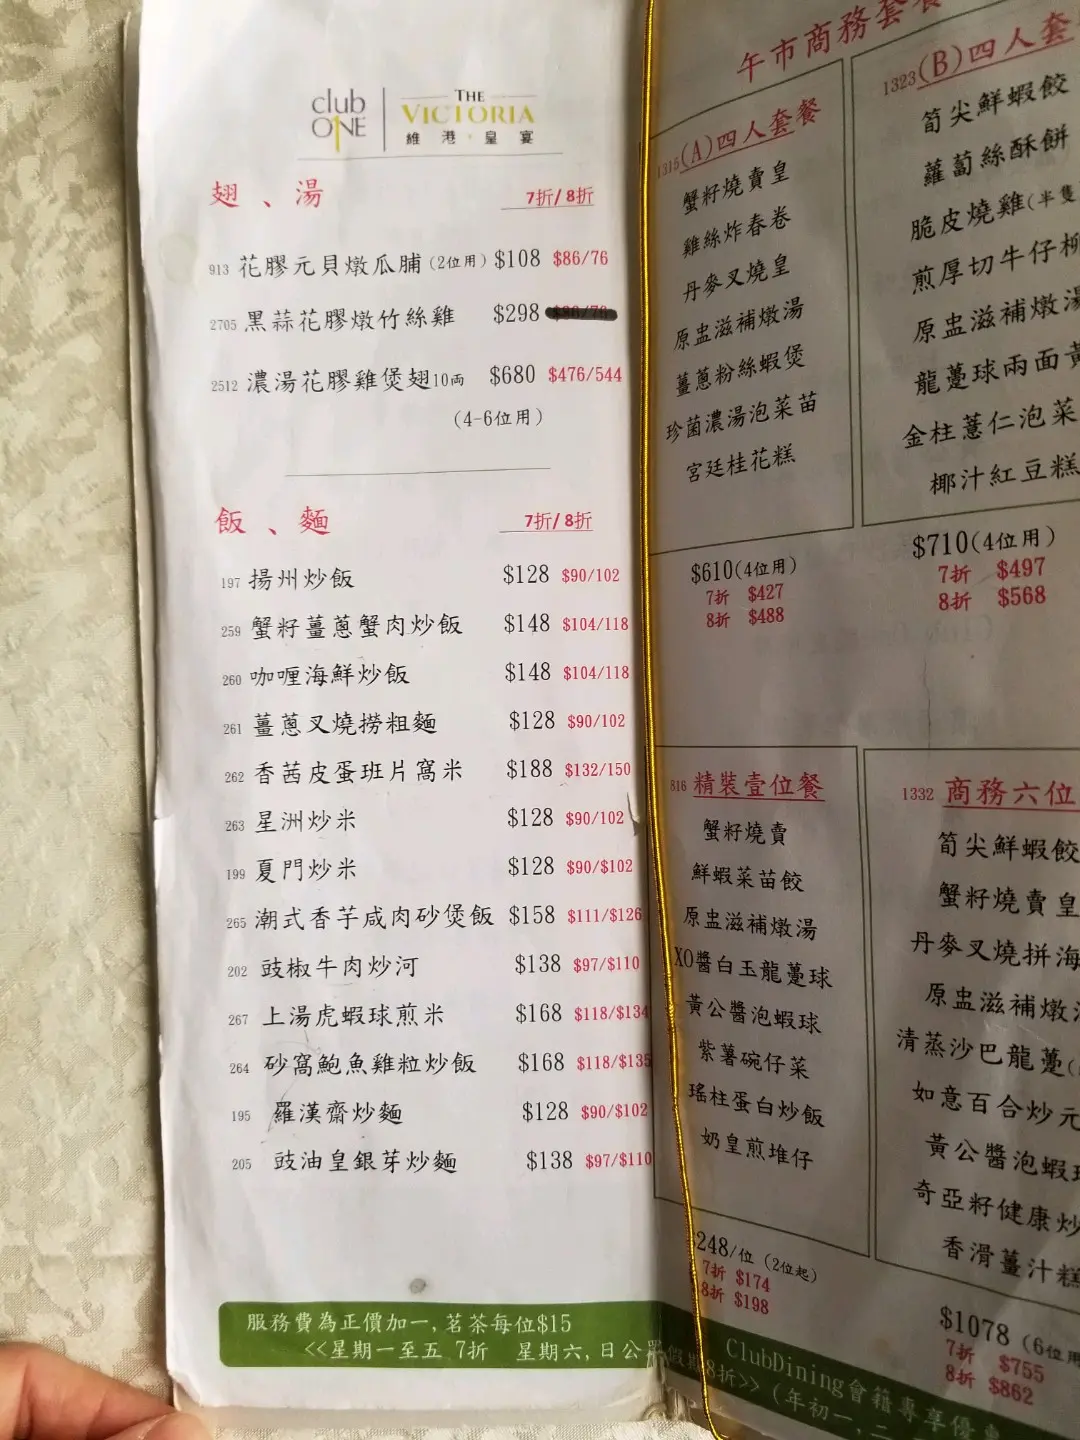 club ONE
THE VICTORIA
維港·皇宴
翅、湯 7折/8折
913 花膠元貝燉瓜脯(2位用) $108 $86/76
2705 黑蒜花膠燉竹絲雞 $298
2512 濃湯花膠雞煲翅10両 $680 $476/544
(4-6位用)
飯、麵 7折/8折
197 揚州炒飯 $128 $90/102
259 蟹籽薑蔥蟹肉炒飯 $148 $104/118
260 咖喱海鮮炒飯 $148 $104/118
261 薑蔥叉燒撈粗麵 $128 $90/102
262 香茜皮蛋班片窩米 $188 $132/150
263 星洲炒米 $128 $90/102
199 夏門炒米 $128 $90/$102
265 潮式香芋咸肉砂煲飯 $158 $111/$126
202 豉椒牛肉炒河 $138 $97/$110
267 上湯虎蝦球煎米 $168 $118/$134
264 砂窩鮑魚雞粒炒飯 $168 $118/$135
195 羅漢齋炒麵 $128 $90/$102
205 豉油皇銀芽炒麵 $138 $97/$110
服務費為正價加一,茗茶每位$15
<<星期一至五 7折 星期六,日公眾假期8折>>
午市商務套餐
1315(A)四人套餐
蟹籽燒賣皇
雞絲炸春卷
丹麥叉燒皇
原盅滋補燉湯
薑蔥粉絲蝦煲
珍菌濃湯泡菜苗
宮廷桂花糕
$610(4位用)
7折 $427
8折 $488
1323(B)四人套
筍尖鮮蝦餃
蘿蔔絲酥餅
脆皮燒雞(半隻
煎厚切牛仔柳
原盅滋補燉湯
龍躉球兩面黃
金柱薏仁泡菜
椰汁紅豆糕
$710(4位用)
7折 $497
8折 $568
816 精裝壹位餐
蟹籽燒賣
鮮蝦菜苗餃
原盅滋補燉湯
XO醬白玉龍躉球
黃公醬泡蝦球
紫薯碗仔菜
瑤柱蛋白炒飯
奶皇煎堆仔
248/位 (2位起)
7折 $174
8折 $198
1332 商務六位
筍尖鮮蝦餃
蟹籽燒賣皇
丹麥叉燒拼海
原盅滋補燉
清蒸沙巴龍躉(
如意百合炒元
黃公醬泡蝦球
奇亞籽健康炒
香滑薑汁糕
$1078 (6位用
7折 $755
8折 $862
ClubDining會籍專享優惠
(年初一,二